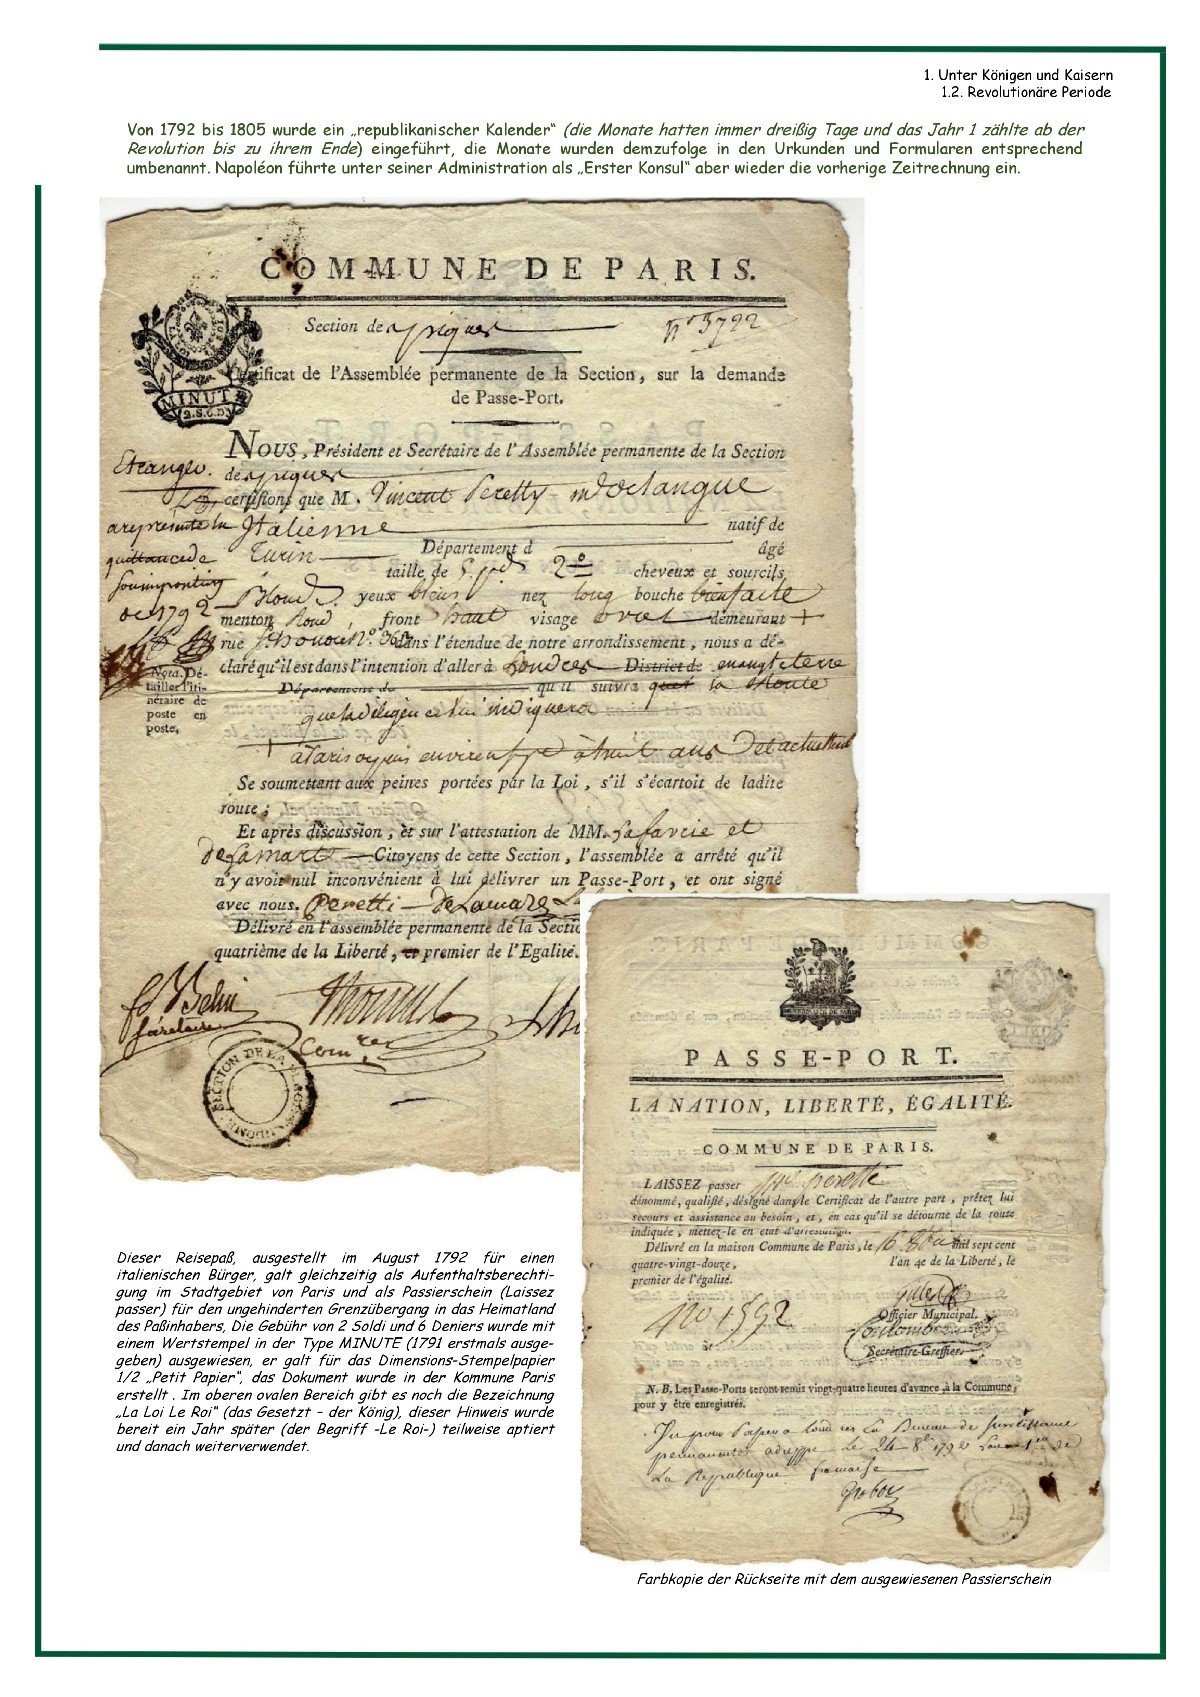 1. Unter Königen und Kaisern
1.2. Revolutionäre Periode
Von 1792 bis 1805 wurde ein „republikanischer Kalender“ (die Monate hatten immer dreißig Tage und das Jahr 1 zählte ab der
Revolution bis zu ihrem Ende) eingeführt, die Monate wurden demzufolge in den Urkunden und Formularen entsprechend
umbenannt. Napoléon führte unter seiner Administration als „Erster Konsul“ aber wieder die vorherige Zeitrechnung ein.
COMMUNE DE PARIS.
Section de piques
n° 3722
Certificat de l'Assemblée permanente de la Section, sur la demande
de Passe-Port.
MINUTE
2.S.6.D
NOUS, Président et Secrétaire de l'Assemblée permanente de la Section
Etranger. de piques
certifions que M. Vincent Peretty
a représenté la Italienne natif de
quittance de Turin Département d âgé
taille de 5 pds 2° cheveux et sourcils
de 1792 Blond yeux bleus nez long bouche bienfaite
menton Rond, front haut visage oval demeurant +
rue St honoré N° 363 dans l'étendue de notre arrondissement, nous a dé-
claré qu'il est dans l'intention d'aller à Londres District de en angleterre
Département de qu'il suivra la Route
Nota. Dé-
tailler l'iti-
néraire de
poste en
poste.
que la diligence lui indiquera
+ à Paris depuis environ
Se soumettant aux peines portées par la Loi, s'il s'écartoit de ladite
route;
Et après discussion, et sur l'attestation de MM. Lafarcie et
De Lamare Citoyens de cette Section, l'assemblée a arrêté qu'il
n'y avoit nul inconvénient à lui délivrer un Passe-Port, et ont signé
avec nous. Peretti De Lamare
Délivré en l'assemblée permanente de la Sectio
quatrième de la Liberté, et premier de l'Egalité.
Secrétaire
SECTION DE LA PLACE VENDOME
PASSE-PORT.
LA NATION, LIBERTÉ, ÉGALITÉ.
COMMUNE DE PARIS.
LAISSEZ passer peretti
dénommé, qualifié, désigné dans le Certificat de l'autre part, prêtez lui
secours et assistance au besoin, et, en cas qu'il se détourne de la route
indiquée, mettez-le en état d'arrestation.
Délivré en la maison Commune de Paris, le 16 mil sept cent
quatre-vingt-douze, l'an 4e de la Liberté, le
premier de l'égalité.
N° 1592
Officier Municipal.
Secrétaire-Greffier.
N. B. Les Passe-Ports seront remis vingt-quatre heures d'avance, à la Commune,
pour y être enregistrés.
Vu au Bureau de Surveillance
permanente le 24 8bre 1792 Lan 1er de
La Republique francaise
Dieser Reisepaß, ausgestellt im August 1792 für einen
italienischen Bürger, galt gleichzeitig als Aufenthaltsberechti-
gung im Stadtgebiet von Paris und als Passierschein (Laissez
passer) für den ungehinderten Grenzübergang in das Heimatland
des Paßinhabers, Die Gebühr von 2 Soldi und 6 Deniers wurde mit
einem Wertstempel in der Type MINUTE (1791 erstmals ausge-
geben) ausgewiesen, er galt für das Dimensions-Stempelpapier
1/2 „Petit Papier“, das Dokument wurde in der Kommune Paris
erstellt . Im oberen ovalen Bereich gibt es noch die Bezeichnung
„La Loi Le Roi“ (das Gesetzt – der König), dieser Hinweis wurde
bereit ein Jahr später (der Begriff -Le Roi-) teilweise aptiert
und danach weiterverwendet.
Farbkopie der Rückseite mit dem ausgewiesenen Passierschein